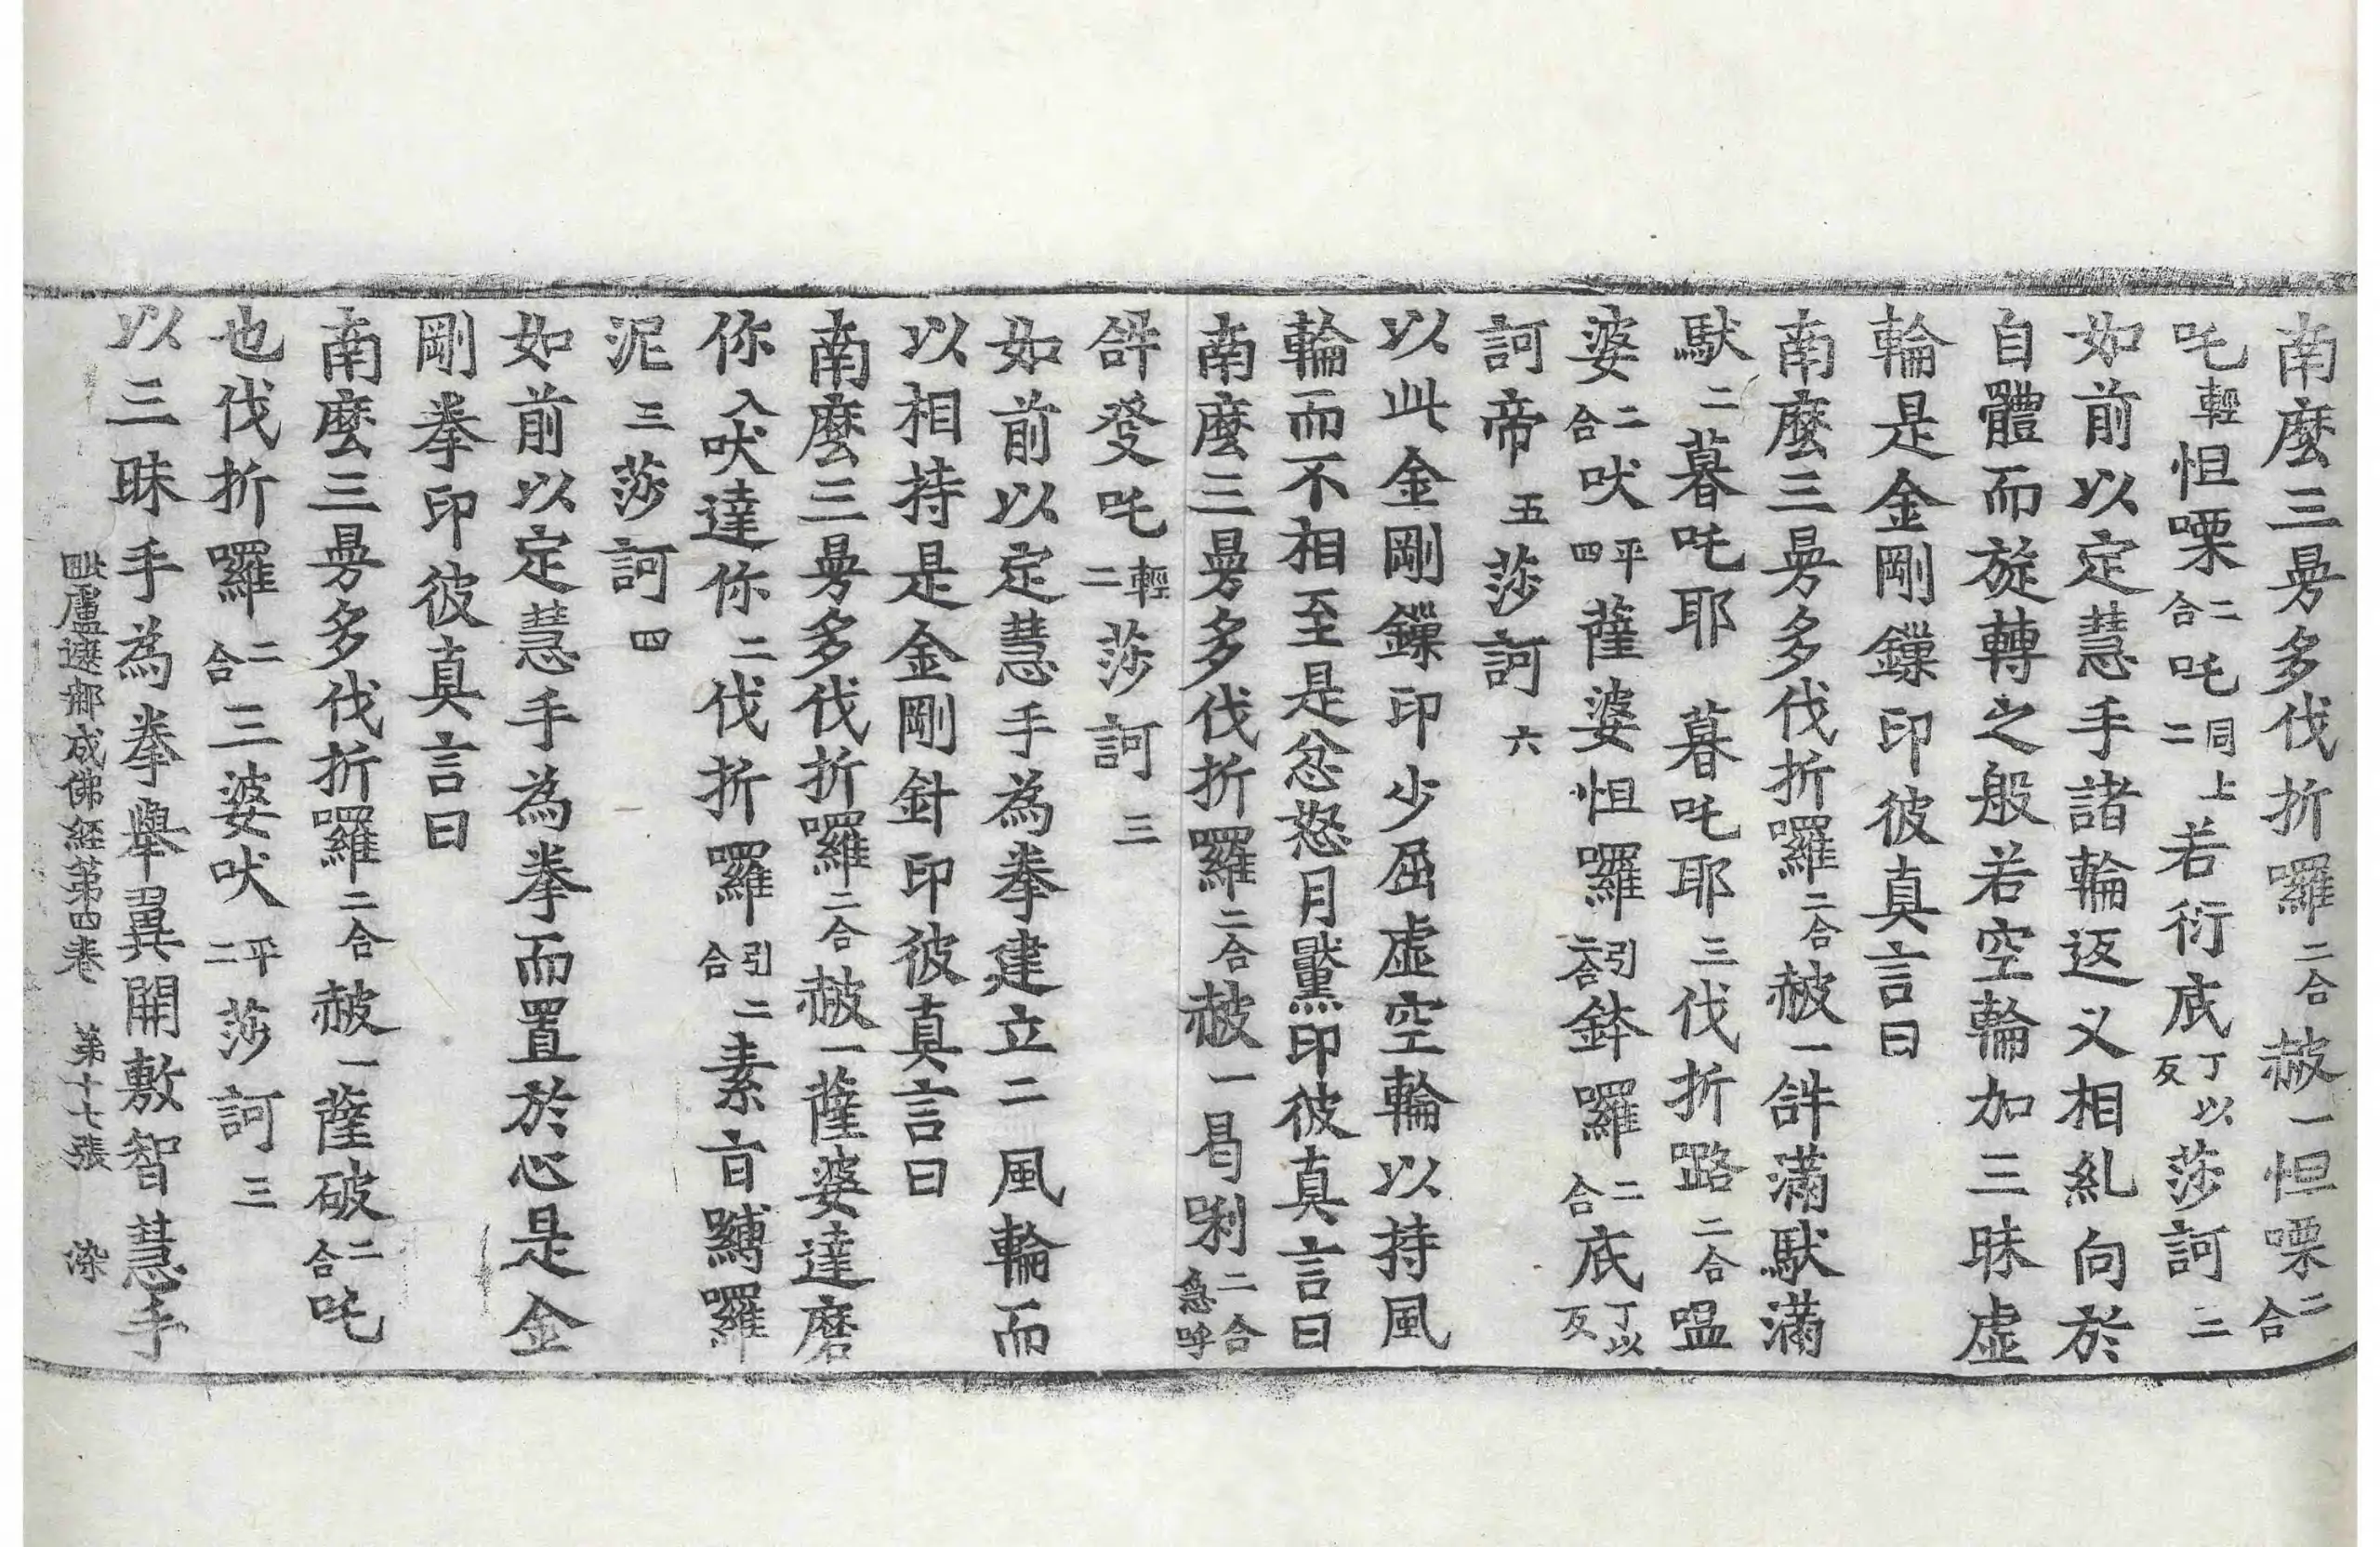 南麼三曼多伐折囉二合赧一怛㗚二合
吒輕怛㗚二合吒同上二若衍底丁以反莎訶三
如前以定慧手諸輪返叉相糺向於
自體而旋轉之般若空輪加三昧虛
輪是金剛鏁印彼真言曰
南麼三曼多伐折囉二合赧一𤙖滿馱滿
馱二暮吒耶暮吒耶三伐折𡀔二合嗢
婆二合吠平四薩婆怛囉引二合鉢囉二合底丁以反
訶帝五莎訶六
以此金剛鏁印少屈虛空輪以持風
輪而不相至是忿怒月黶印彼真言曰
南麼三曼多伐折囉二合赧一曷唎二合急呼
𤙖發吒輕二莎訶三
如前以定慧手為拳建立二風輪而
以相持是金剛針印彼真言曰
南麼三曼多伐折囉二合赧一薩婆達磨
你入吠達你二伐折囉引二合素旨嚩囉
泥三莎訶四
如前以定慧手為拳而置於心是金
剛拳印彼真言曰
南麼三曼多伐折囉二合赧一薩破二合吒
也伐折囉二合三婆吠平二莎訶三
以三昧手為拳舉翼開敷智慧手
毗盧遮那成佛經第四卷 第十七張 染